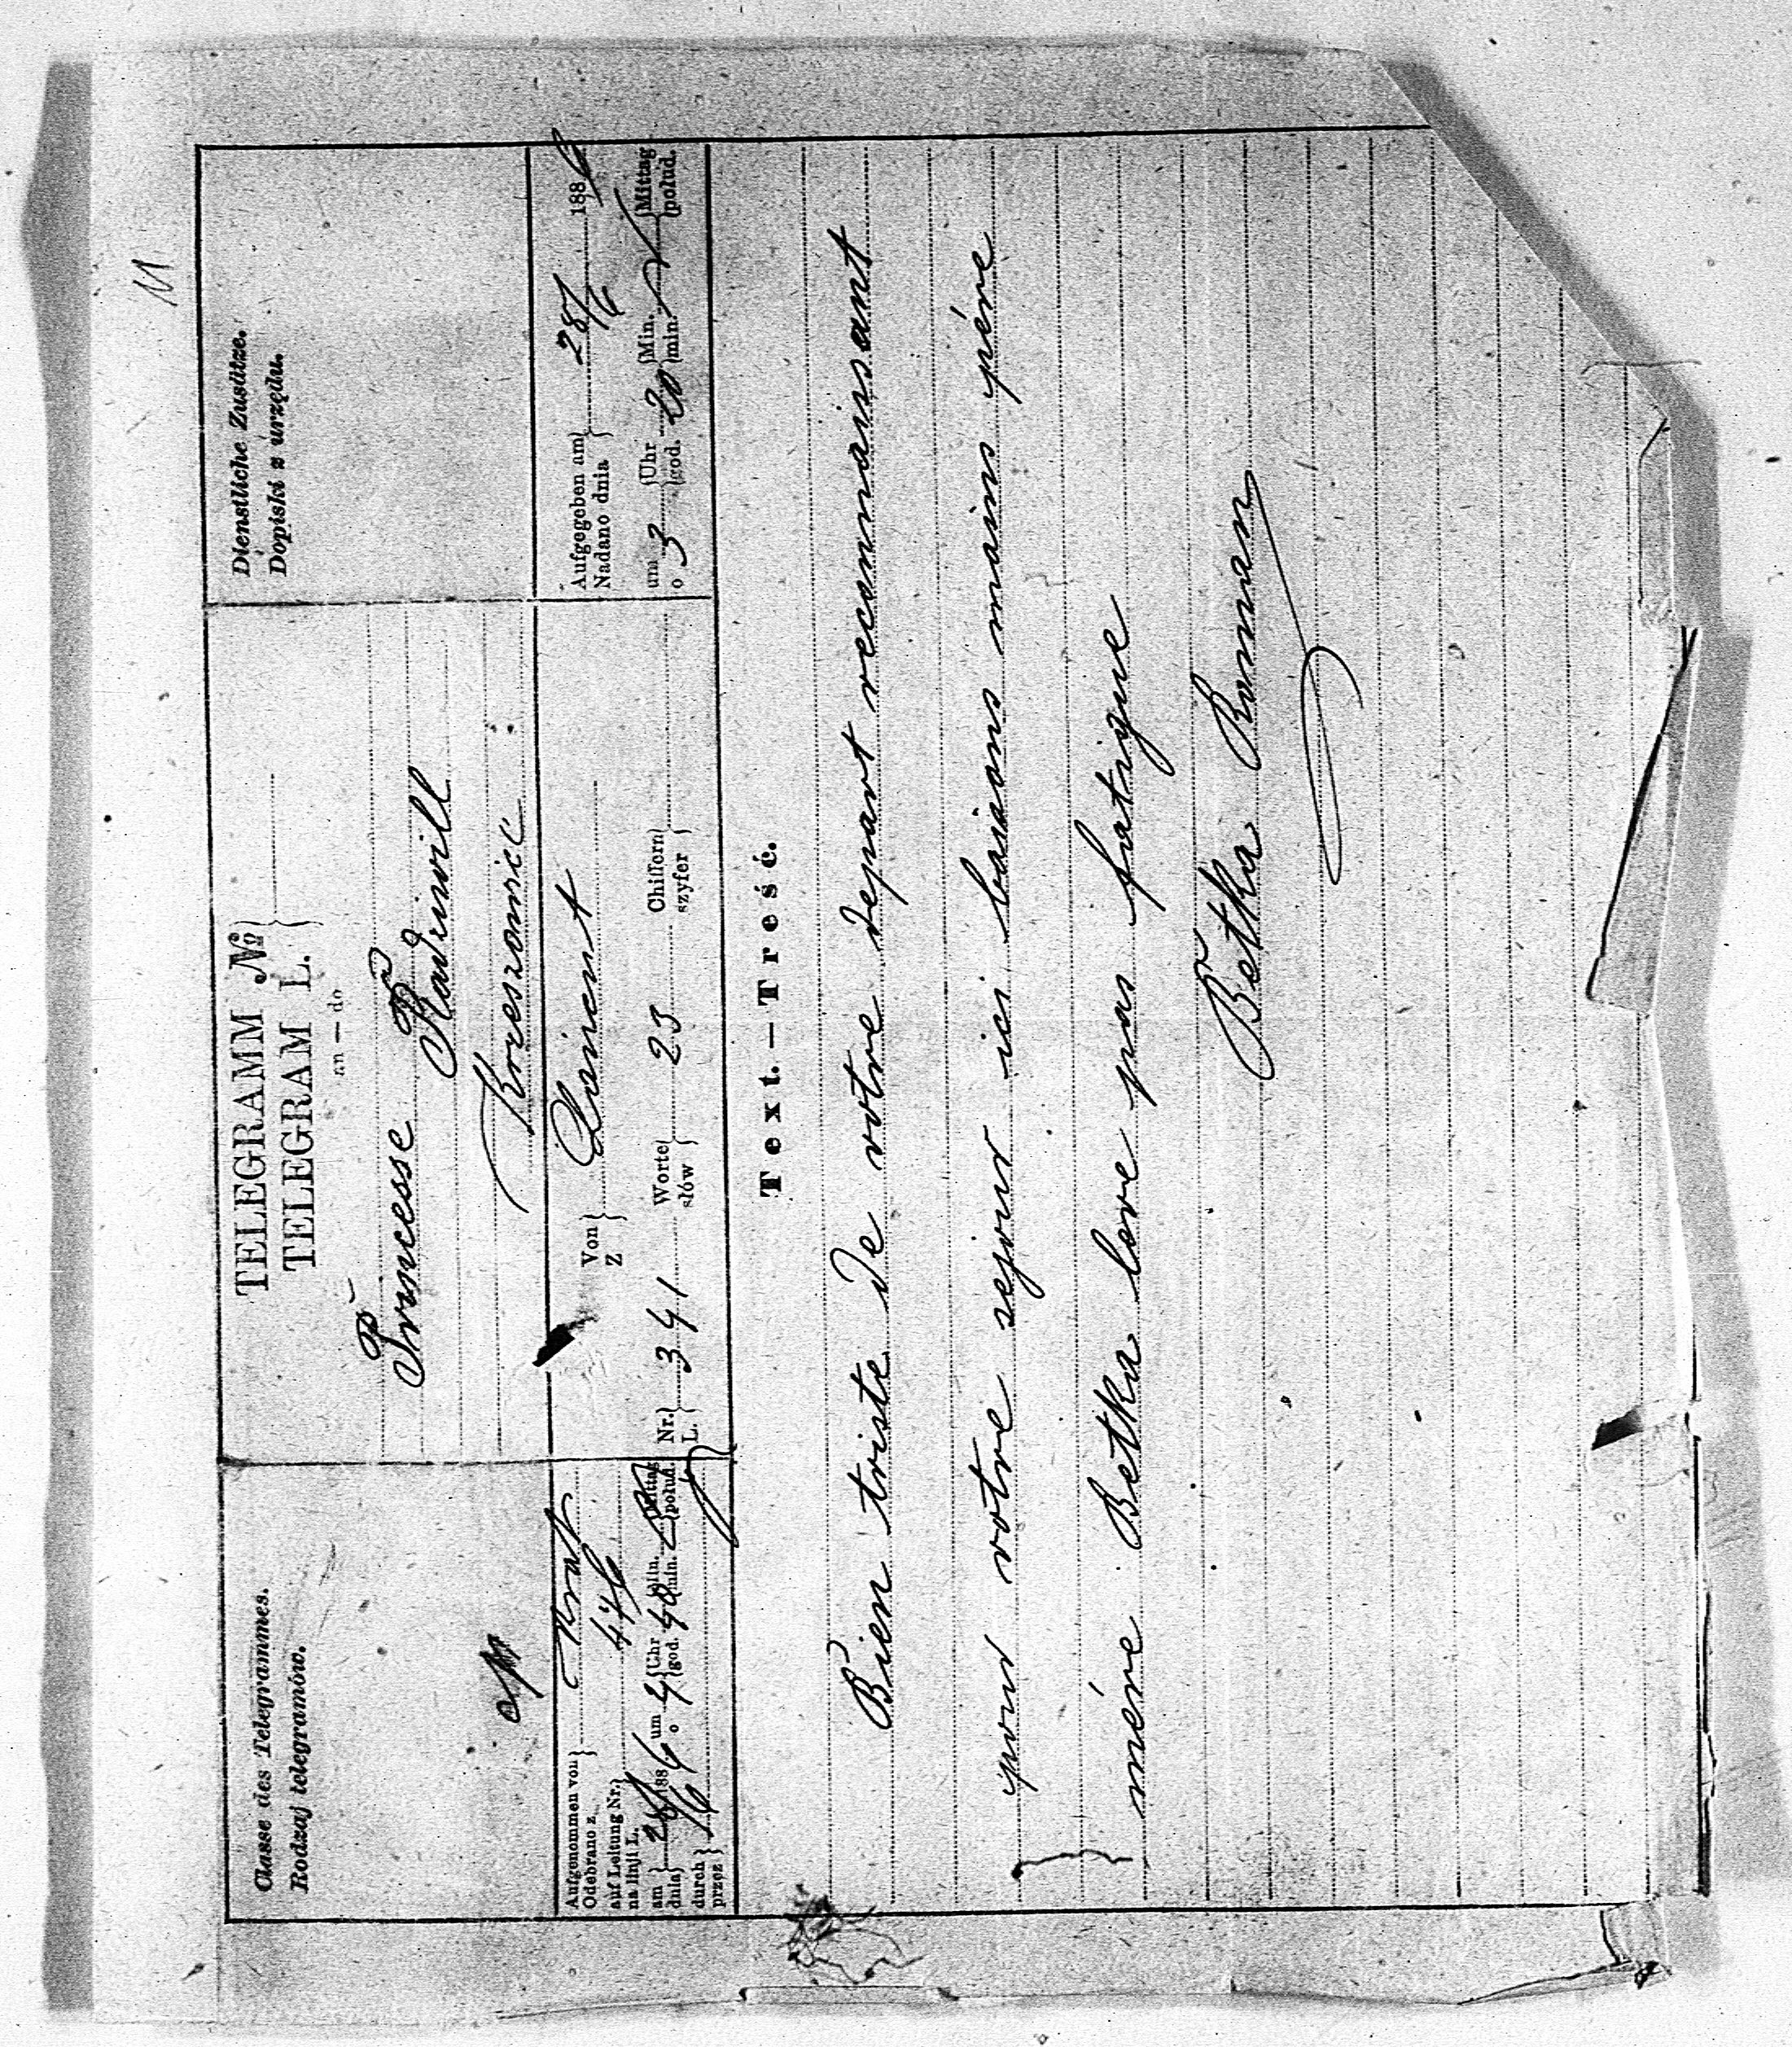 M
Classe des Telegrammes.
Rodzaj telegramów.
TELEGRAMM №
TELEGRAM L.
an — do
Dienstliche Zusätze.
Dopiski z urzędu.
Princesse
Radziwill
Krzeszowice
Aufgenommen von
Odebrano z
auf Leitung Nr.
na linji L.
am
dnia 28/6 1886 um
o 4 Uhr
god. 40 Min.
min. Mittag
połud.
durch
przez
Von
Z
Nr.
L. 341 Worte
słów 23 Chiffern
szyfer
Aufgegeben am
Nadano dnia 28/6 1886
um
o 3 Uhr
god. 20 Min.
min. Mittag
połud.
Text. — Treść.
Bien triste de votre depart reconnaissant
pour votre sejour ici baisons mains père
mère Betka leve pas fatigue
Betka Roman